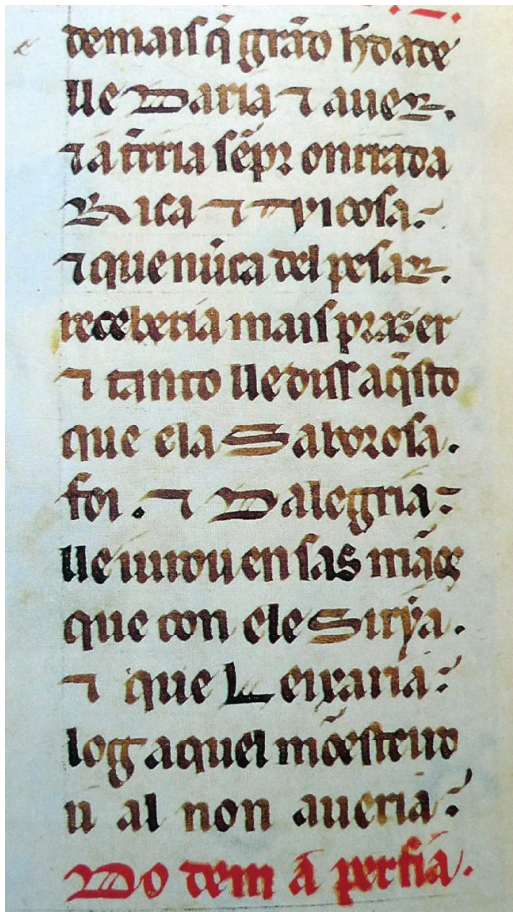 demais q̃ grãd h̃dade
lle Daria ⁊ auer.
⁊ a t̃rria sẽpr onrrada
Rica ⁊ Viçosa.
⁊ que nũca del pesar.
receberia mais prazer
⁊ tanto lle diss aq̃sto
que ela Saborosa.
foi. ⁊ D alegria
lle iurou en sas mãos
que con ele Sirya.
⁊ que Leixaria
log aquel mõesteiro
u al non aueria
Do dem a perfia.